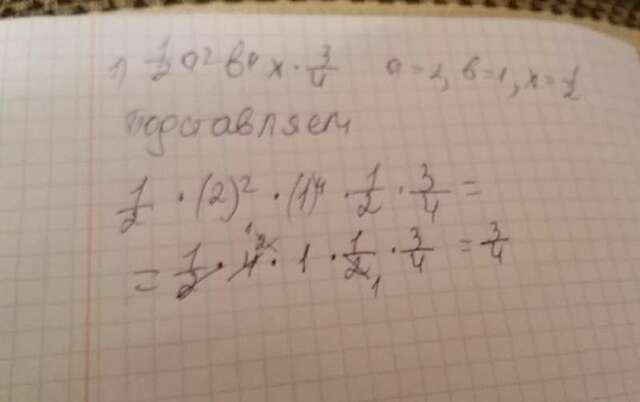 1) 1/2 a² b⁴ x · 3/4 a = 2, b = 1, x = 1/2
Подставляем
1/2 · (2)² · (1)⁴ · 1/2 · 3/4 =
= 1/2 · 4 · 1 · 1/2 · 3/4 = 3/4